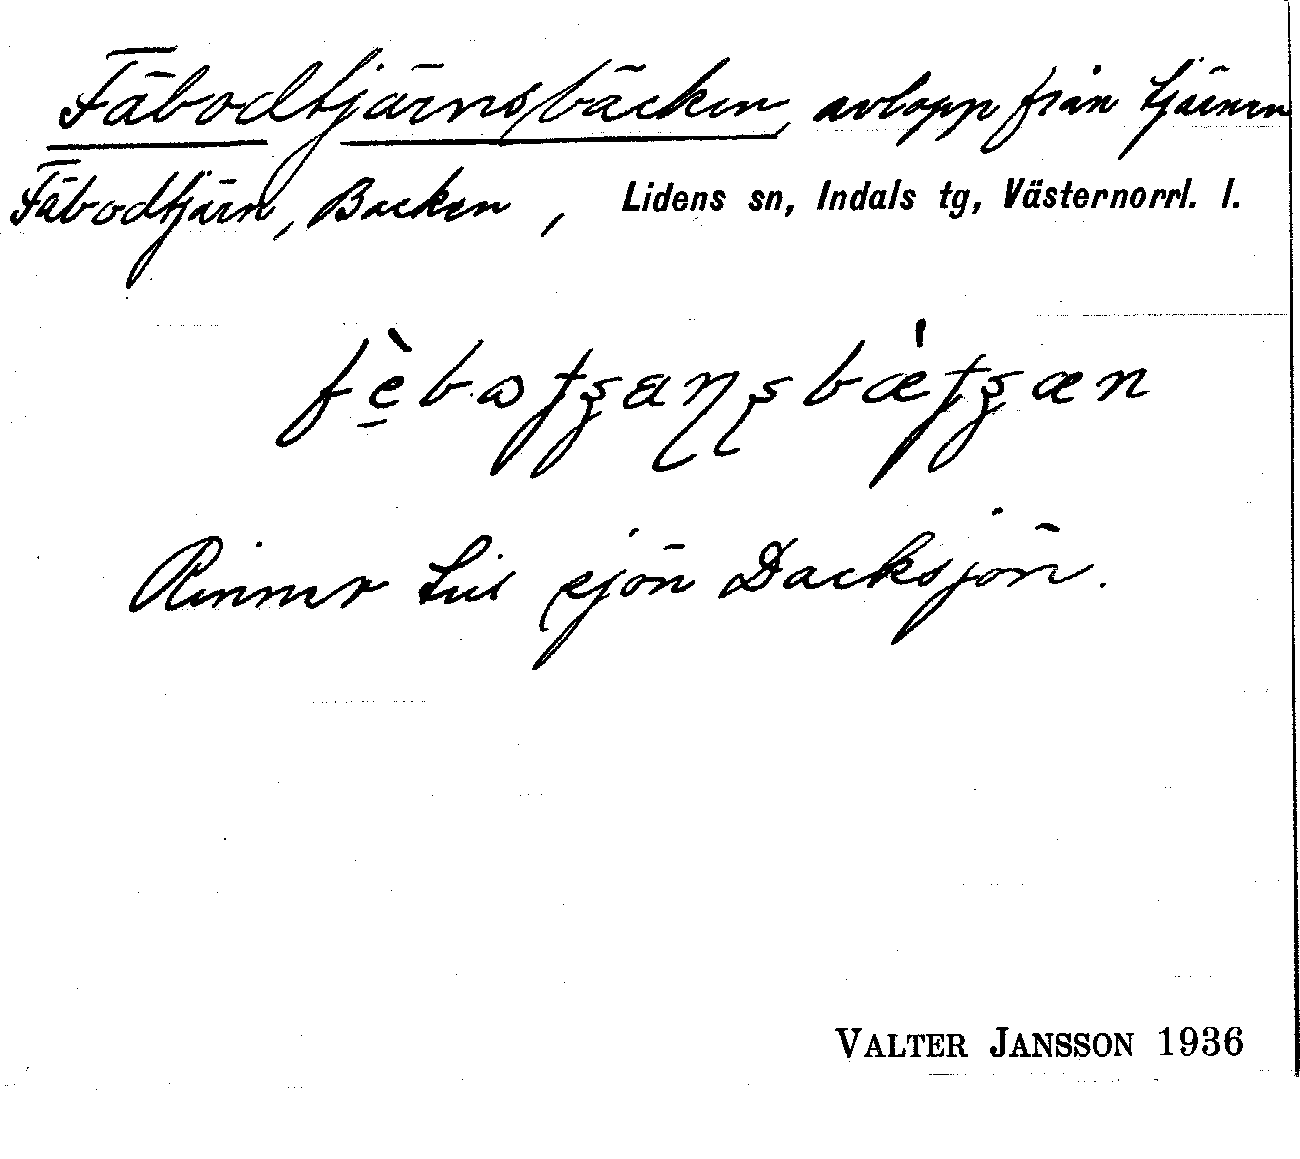 Fäbodtjärnsbäcken, avlopp från tjärnen
Fäbodtjärn, Backen, Lidens sn, Indals tg, Västernorrl. l.
Rinner till sjön Dacksjön.
VALTER JANSSON 1936